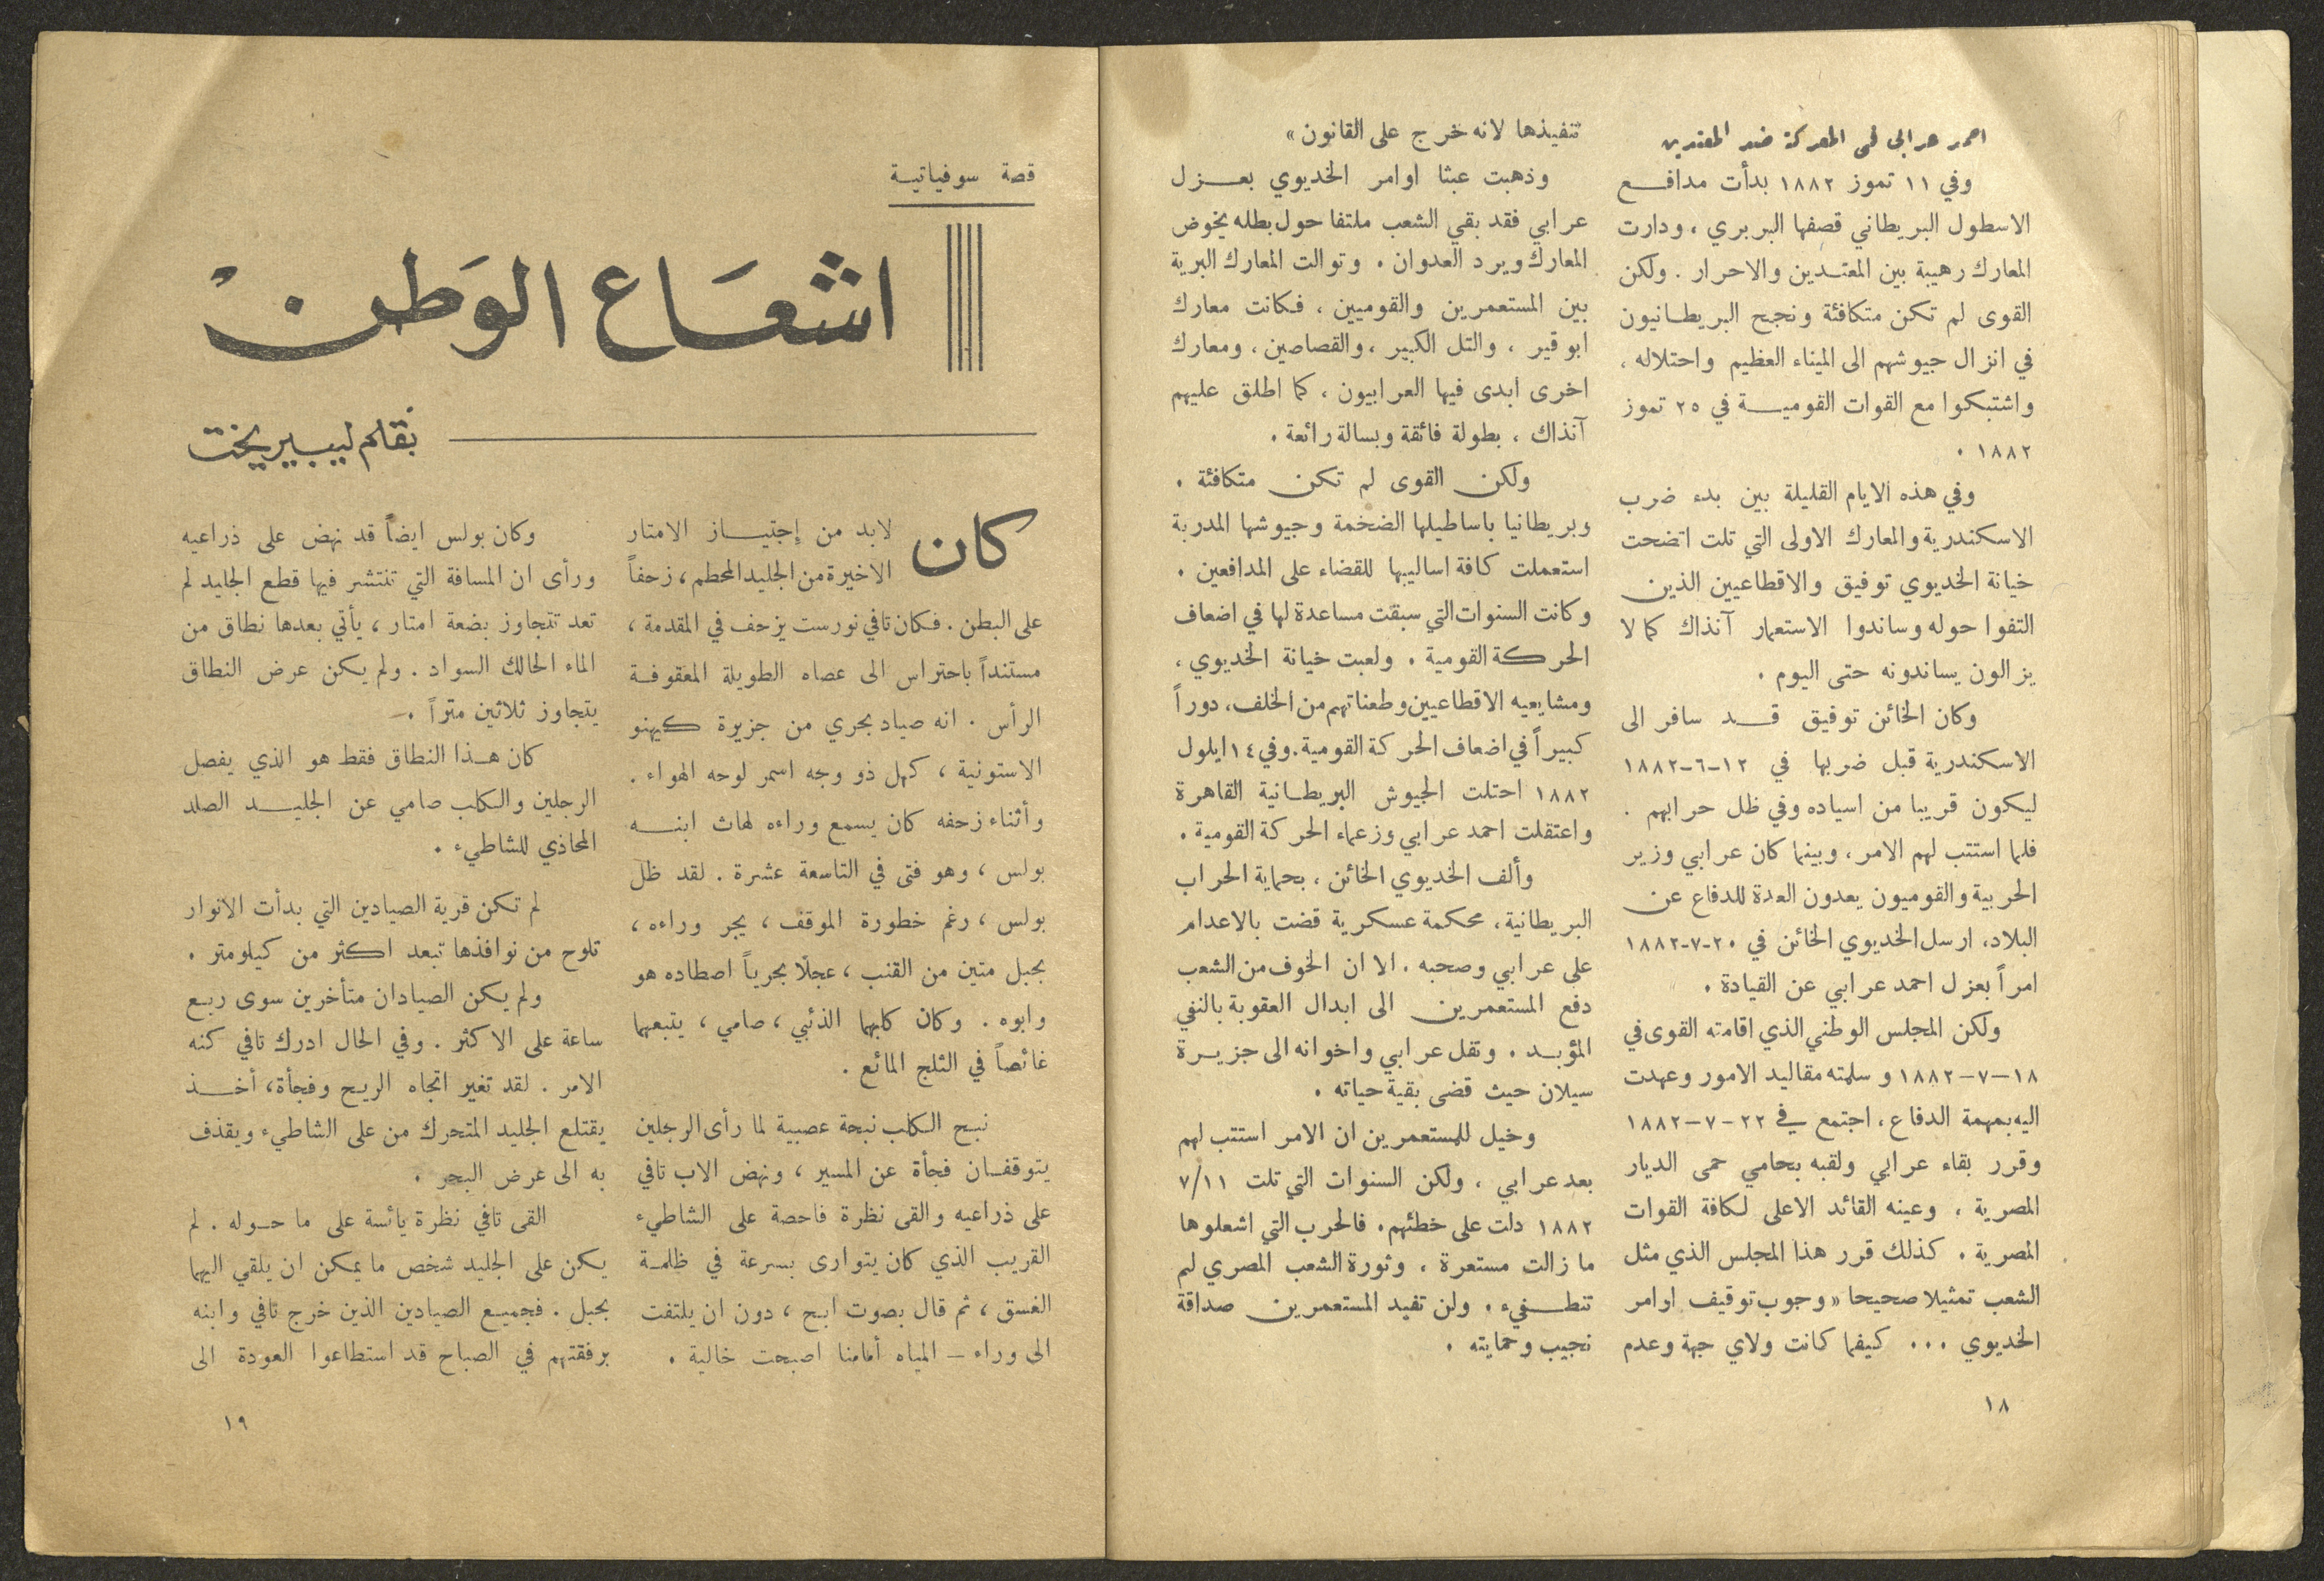 احمد عرابي في المعركة ضد المعتدين
وفي ١١ تموز ١٨٨٢ بدأت مدافع
الاسطول البريطاني قصفها البربري ، ودارت
المعارك رهيبة بين المعتدين والاحرار . ولكن
القوى لم تكن متكافئة ونجح البريطانيون
في انزال جيوشهم الى الميناء العظيم واحتلاله ،
واشتبكوا مع القوات القومية في ٢٥ تموز
١٨٨٢ .
وفي هذه الايام القليلة بين بدء ضرب
الاسكندرية والمعارك الاولى التي تلت اتضحت
خيانة الخديوي توفيق والاقطاعيين الذين
التفوا حوله وساندوا الاستعمار آنذاك كما لا
يزالون يساندونه حتى اليوم .
وكان الخائن توفيق قد سافر الى
الاسكندرية قبل ضربها في ١٢-٦-١٨٨٢
ليكون قريبا من اسياده وفي ظل حرابهم .
فلما استتب لهم الامر ، وبينما كان عرابي وزير
الحربية والقوميون يعدون العدة للدفاع عن
البلاد، ارسل الخديوي الخائن في ٢٠-٧-١٨٨٢
امراً بعزل احمد عرابي عن القيادة .
ولكن المجلس الوطني الذي اقامته القوى في
١٨-٧-١٨٨٢ وسلمته مقاليد الامور وعهدت
اليه بمهمة الدفاع ، اجتمع في ٢٢-٧-١٨٨٢
وقرر بقاء عرابي ولقبه بحامي حمى الديار
المصرية ، وعينه القائد الاعلى لكافة القوات
المصرية . كذلك قرر هذا المجلس الذي مثل
الشعب تمثيلا صحيحا « وجوب توقيف اوامر
الخديوي ... كيفما كانت ولاي جهة وعدم
١٨
تنفيذها لانه خرج على القانون »
وذهبت عبثا اوامر الخديوي بعزل
عرابي فقد بقي الشعب ملتفا حول بطله يخوض
المعارك ويرد العدوان . وتوالت المعارك البرية
بين المستعمرين والقوميين ، فكانت معارك
ابو قير ، والتل الكبير ، والقصاصين ، ومعارك
اخرى ابدى فيها العرابيون ، كما اطلق عليهم
آنذاك ، بطولة فائقة وبسالة رائعة .
ولكن القوى لم تكن متكافئة .
وبريطانيا باساطيلها الضخمة وجيوشها المدربة
استعملت كافة اساليبها للقضاء على المدافعين .
وكانت السنوات التي سبقت مساعدة لها في اضعاف
الحركة القومية . ولعبت خيانة الخديوي ،
ومشايعيه الاقطاعيين وطعناتهم من الخلف ، دوراً
كبيراً في اضعاف الحركة القومية. وفي ١٤ ايلول
١٨٨٢ احتلت الجيوش البريطانية القاهرة
واعتقلت احمد عرابي وزعماء الحركة القومية .
وألف الخديوي الخائن ، بحماية الحراب
البريطانية ، محكمة عسكرية قضت بالاعدام
على عرابي وصحبه . الا ان الخوف من الشعب
دفع المستعمرين الى ابدال العقوبة بالنفي
المؤبد . ونقل عرابي واخوانه الى جزيرة
سيلان حيث قضى بقية حياته .
وخيل للمستعمرين ان الامر استتب لهم
بعد عرابي ، ولكن السنوات التي تلت ٧/١١
١٨٨٢ دلت على خطئهم . فالحرب التي اشعلوها
ما زالت مستعرة ، وثورة الشعب المصري لم
تنطفيء . ولن تفيد المستعمرين صداقة
نجيب وحمايته .
قصة سوفياتية
اشعَاع الوَطن
بقلم ليبيريخت
كان لابد من إجتياز الامتار
الاخيرة من الجليد المحطم ، زحفاً
على البطن . فكان تافي نورست يزحف في المقدمة ،
مستنداً باحتراس الى عصاه الطويلة المعقوفة
الرأس . انه صياد بحري من جزيرة كيهنو
الاستونية ، كهل ذو وجه اسمر لوحه الهواء .
وأثناء زحفه كان يسمع وراءه لهاث ابنه
بولس ، وهو فتى في التاسعة عشرة . لقد ظل
بولس ، رغم خطورة الموقف ، يجر وراءه ،
بحبل متين من القنب ، عجلًا بحرياً اصطاده هو
وابوه . وكان كلبهما الذئبي ، صامي ، يتبعهما
غائصاً في الثلج المائع .
نبح الكلب نبحة عصبية لما رأى الرجلين
يتوقفان فجأة عن المسير ، ونهض الاب تافي
على ذراعيه والقى نظرة فاحصة على الشاطيء
القريب الذي كان يتوارى بسرعة في ظلمة
الغسق ، ثم قال بصوت ابح ، دون ان يلتفت
الى وراء – المياه أمامنا اصبحت خالية .
وكان بولس ايضاً قد نهض على ذراعيه
ورأى ان المسافة التي تنتشر فيها قطع الجليد لم
تعد تتجاوز بضعة امتار ، يأتي بعدها نطاق من
الماء الحالك السواد . ولم يكن عرض النطاق
يتجاوز ثلاثين متراً .
كان هذا النطاق فقط هو الذي يفصل
الرجلين والكلب صامي عن الجليد الصلد
المحاذي للشاطيء .
لم تكن قرية الصيادين التي بدأت الانوار
تلوح من نوافذها تبعد اكثر من كيلومتر .
ولم يكن الصيادان متأخرين سوى ربع
ساعة على الاكثر . وفي الحال ادرك تافي كنه
الامر . لقد تغير اتجاه الريح وفجأة ، أخذ
يقتلع الجليد المتحرك من على الشاطيء ويقذف
به الى عرض البحر .
القى تافي نظرة يائسة على ما حوله . لم
يكن على الجليد شخص ما يمكن ان يلقي اليهما
بحبل . فجميع الصيادين الذين خرج تافي وابنه
برفقتهم في الصباح قد استطاعوا العودة الى
١٩